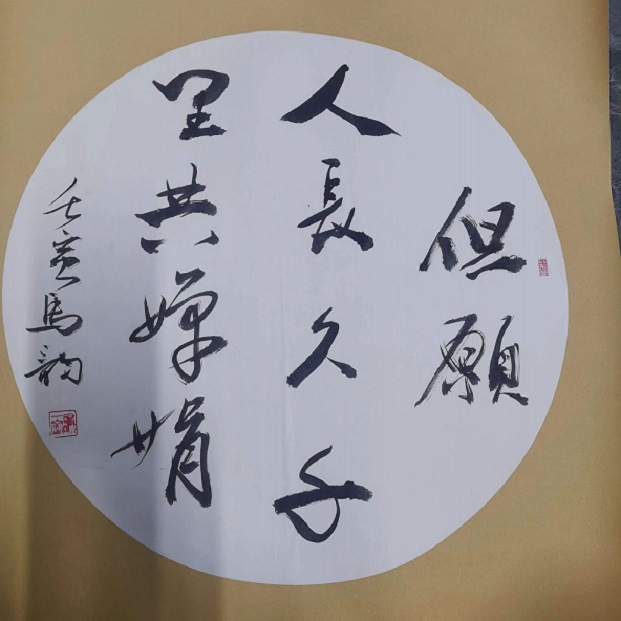 但願
人長久千
里共嬋娟
壬寅馬韵